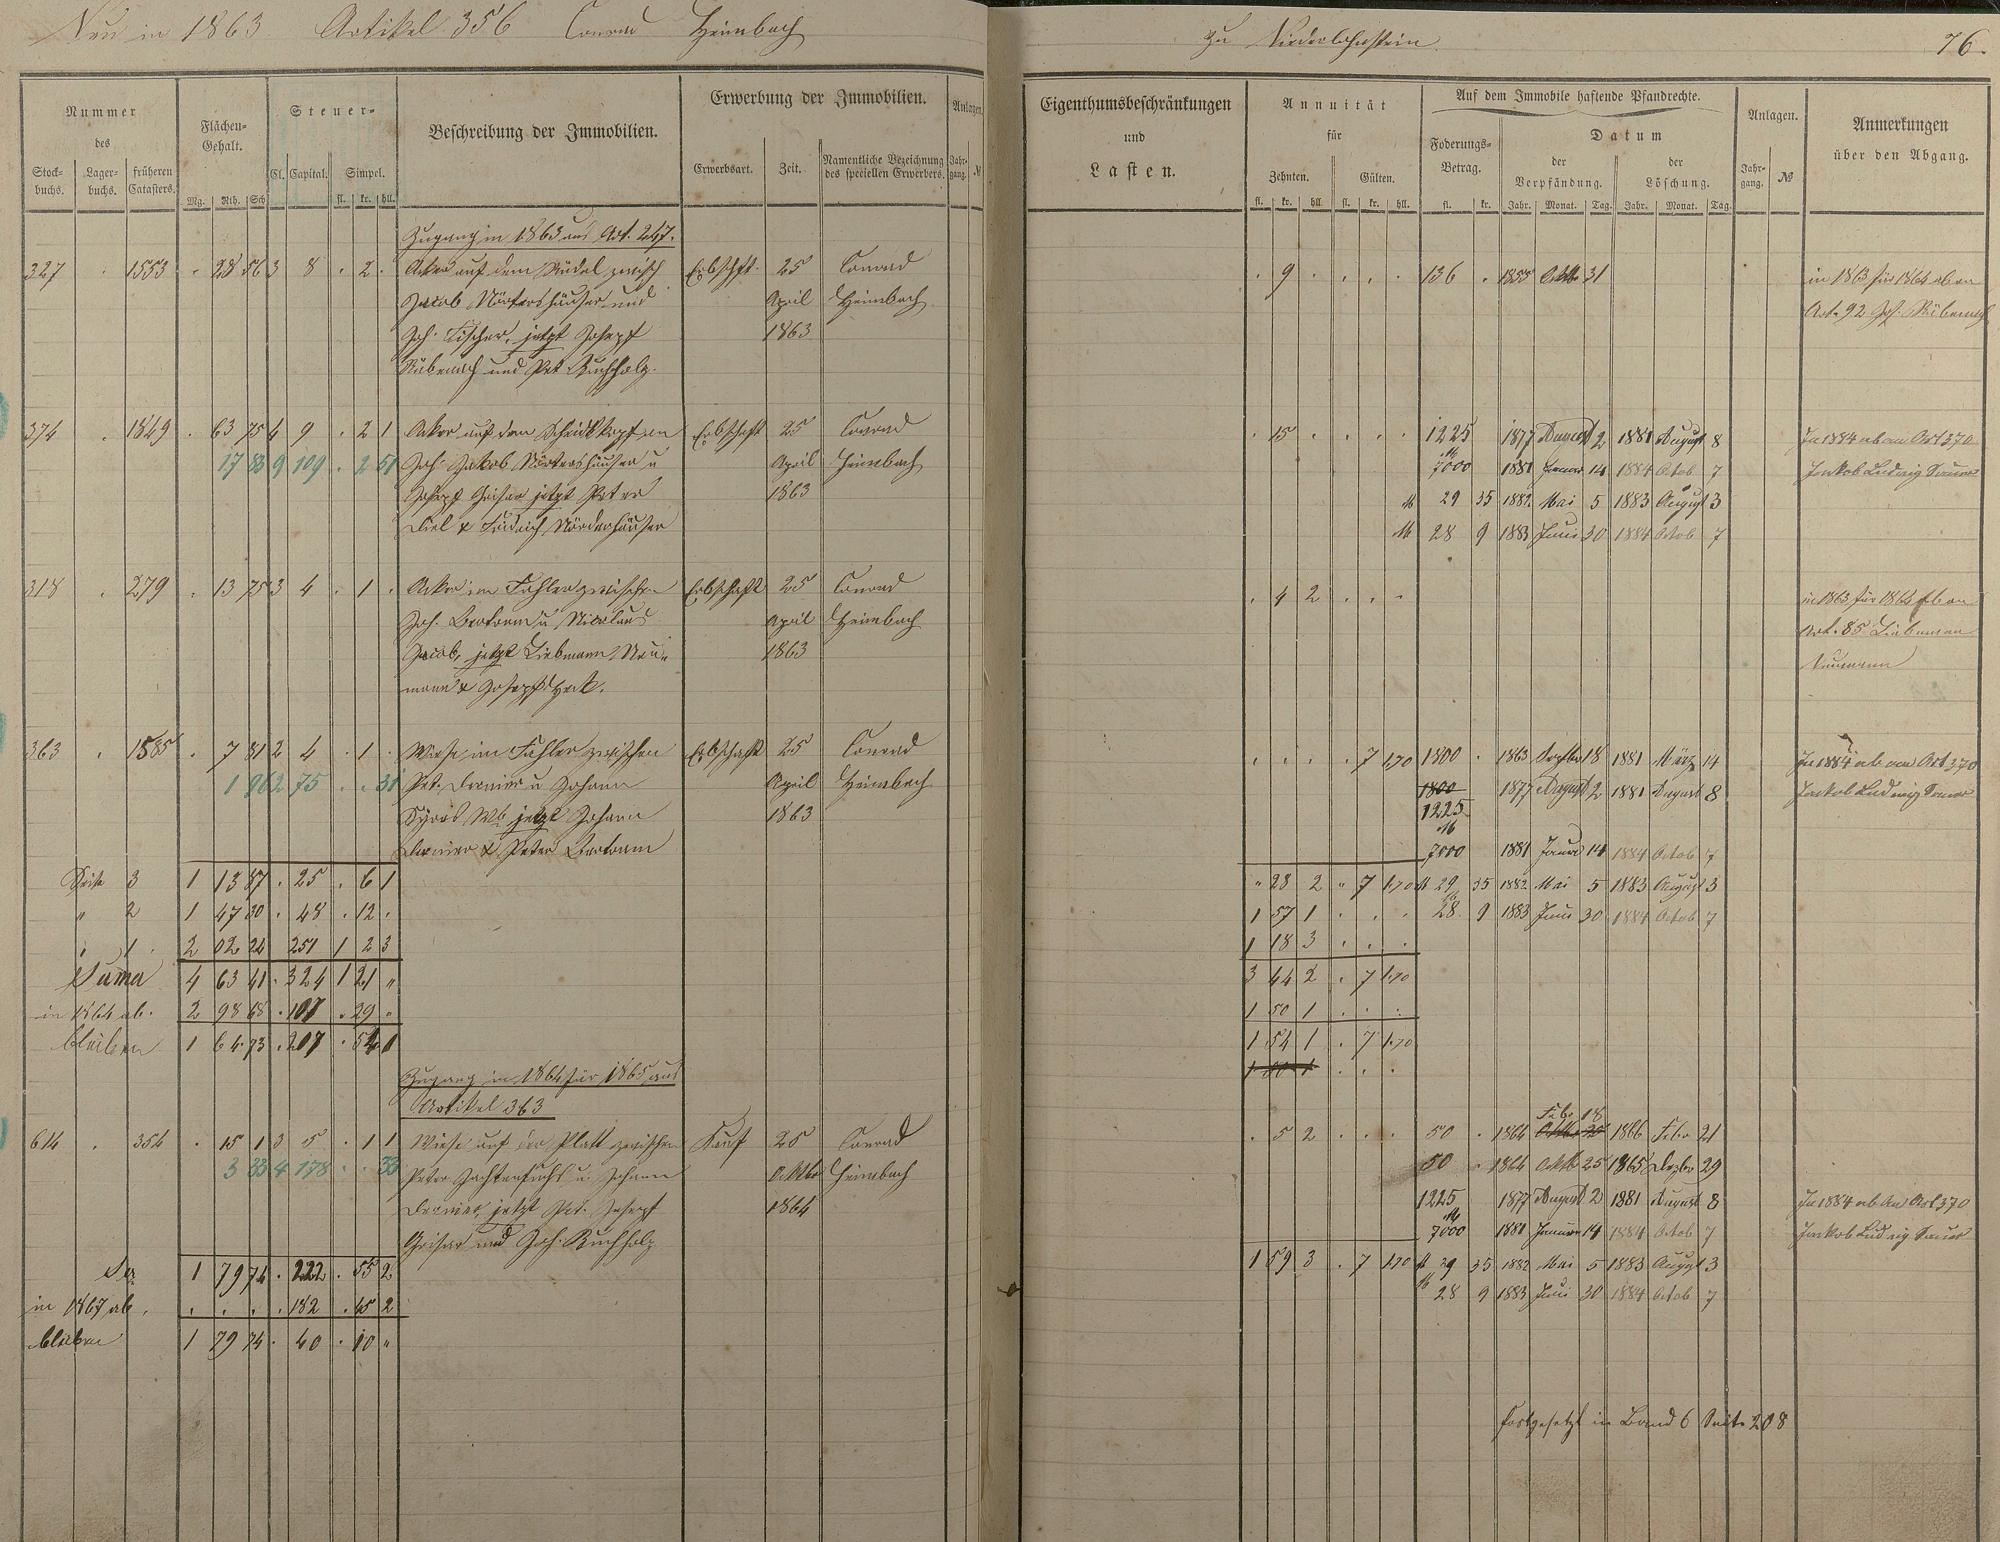 Neu in 1863. Artikel 356 Conrad Heimbach
Nummer
des
Stockbuchs. Lagerbuchs. früheren Catasters.
Flächen-Gehalt.
Mg. Rth. Sch
Steuer-
Cl. Capital. Simpel.
fl. kr. hll.
Beschreibung der Immobilien.
Erwerbung der Immobilien.
Erwerbsart. Zeit. Namentliche Bezeichnung des speciellen Erwerbers.
Anlagen.
Jahrgang. №
Zugang in 1863 aus Art. 247.
327 . 1553 . 28 56 3 8 . 2 . Acker auf dem Rüdel zwisch Erbschft. 25 Conrad
Jacob Nörtershäuser und April Heimbach
Joh. Fischer, jetzt Joseph 1863
Rübenach und Pet. Buchholz.
374 . 1849 . 63 75 4 9 . 2 1 Acker auf dem Scheidskopf an Erbschaft 25 Conrad
17 83 9 109 . 2 51 Joh. Jakob Nörtershäuser u April Heimbach
Joseph Geisar jetzt Peter 1863
Diel & Fridrich Nörderhäuser
318 . 279 . 13 75 3 4 . 1 . Acker im Fahler zwischen Erbschaft 25 Conrad
Joh. Bertram u. Nicolaus April Heimbach
Jacob, jetzt Liebmann Neu- 1863
mann & Joseph Herk.
363 . 1585 . 7 81 2 4 . 1 . Wiese im Fahler zwischen Erbschaft 25 Conrad
1 96 2 75 . . 31 Pet. Dernier u Johann April Heimbach
Wb jetzt Johann 1863
Dernier & Peter Bertram
Seite 3 1 13 87 . 25 . 6 1
" 2 1 47 30 . 48 . 12 .
" 1 2 02 24 251 1 2 3
Suma 4 63 41 . 324 1 21 "
in 1864 ab. 2 98 68 . 107 . 29 "
bleiben 1 64 73 . 207 . 51
Zugang in 1864 für 1865 aus
Artikel 363
614 . 354 . 15 1 3 5 . 1 1 Wiese auf der Platt zwischen Kauf 25 Conrad
3 83 4 178 . . 33 Peter Zachtenfuchs u. Johann Oktbr Heimbach
Dernier, jetzt Joseph 1864
Geisar und Joh. Buchholz
Sa 1 79 74 . 222 . 55 2
in 1867 ab. . . . . 182 . 45 2
bleiben 1 79 74 . 40 . 10 "
zu Niederlahnstein. 76.
Eigenthumsbeschränkungen
und
Lasten.
Annuität
für
Zehnten. Gülten.
fl. kr. hll. fl. kr. hll.
Auf dem Immobile haftende Pfandrechte.
Foderungs-Betrag.
fl. kr.
Datum
der Verpfändung. der Löschung.
Jahr. Monat. Tag. Jahr. Monat. Tag.
Anlagen.
Jahrgang. №
Anmerkungen
über den Abgang.
. 9 . . . . 136 . 1855 Oktbr 31 in 1863 für 1864 ab an
Art. 92 Jos. Rübenach
. 15 . . . . 1225 1877 August 2 1881 August 8 In 1884 ab an Art 370
M 7000 1881 Januar 14 1884 Octob 7 Jackob Ludwig Sauer
M 29 35 1882 Mai 5 1883 August 3
M 28 9 1883 Juni 30 1884 Octob 7
. 4 2 . . . in 1863 für 1864 ab an
Art. 85 Liebmann
Neumann
. . . . 7 1.70 1300 . 1863 Septbr 18 1881 März 14 In 1884 ab an Art 370
1800 1877 August 2 1881 August 8 Jackob Ludwig Sauer
1225
M 7000 1881 Januar 14 1884 Octob 7
" 28 2 " 7 1.70 M 29 35 1882 Mai 5 1883 August 3
1 57 1 . . . M 28 9 1883 Juni 30 1884 Octob 7
1 18 3 . . .
3 44 2 . 7 1.70
1 50 1 . . .
1 54 1 . 7 1.70
Febr 18
. 5 2 . . . 50 . 1864 Oktbr 25 1866 Febr 21
50 . 1864 Oktbr 25 1865 Dezbr 29
1225 1877 August 2 1881 August 8 In 1884 ab an Art 370
M 7000 1881 Januar 14 1884 Octob 7 Jackob Ludwig Sauer
1 59 3 . 7 1.70 M 29 35 1882 Mai 5 1883 August 3
M 28 9 1883 Juni 30 1884 Octob 7
fortgesetzt in Band 6 Seite 208